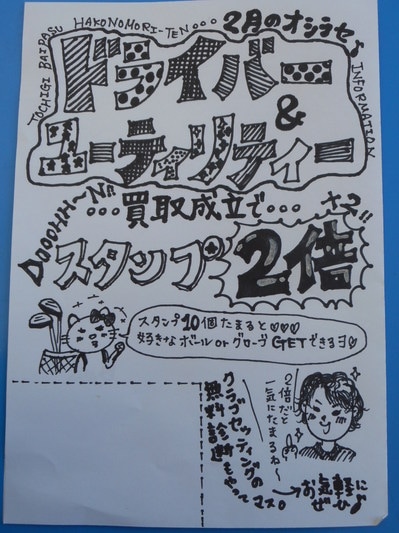 TOCHIGI BAIPASU HAKONOMORI-TEN・・・
2月のオシラセ♪
INFORMATION
ドライバー
&
ユーティリティー
DOOOHH〜N!!
・・・買取成立で・・・
スタンプ2倍
スタンプ10個たまると♡♡♡
好きなボール or グローブ GETできるヨ♡
2倍だと
一気にたまるね〜
クラブセッティングの
無料診断もやって
マス。
→お気軽に
ぜひ♪